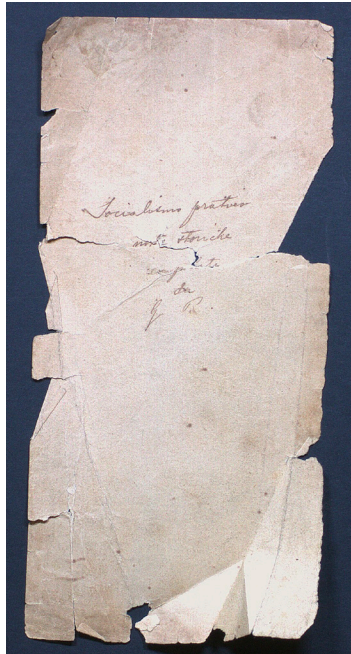 Socialismo pratico
note storiche
compilate
da
G R.